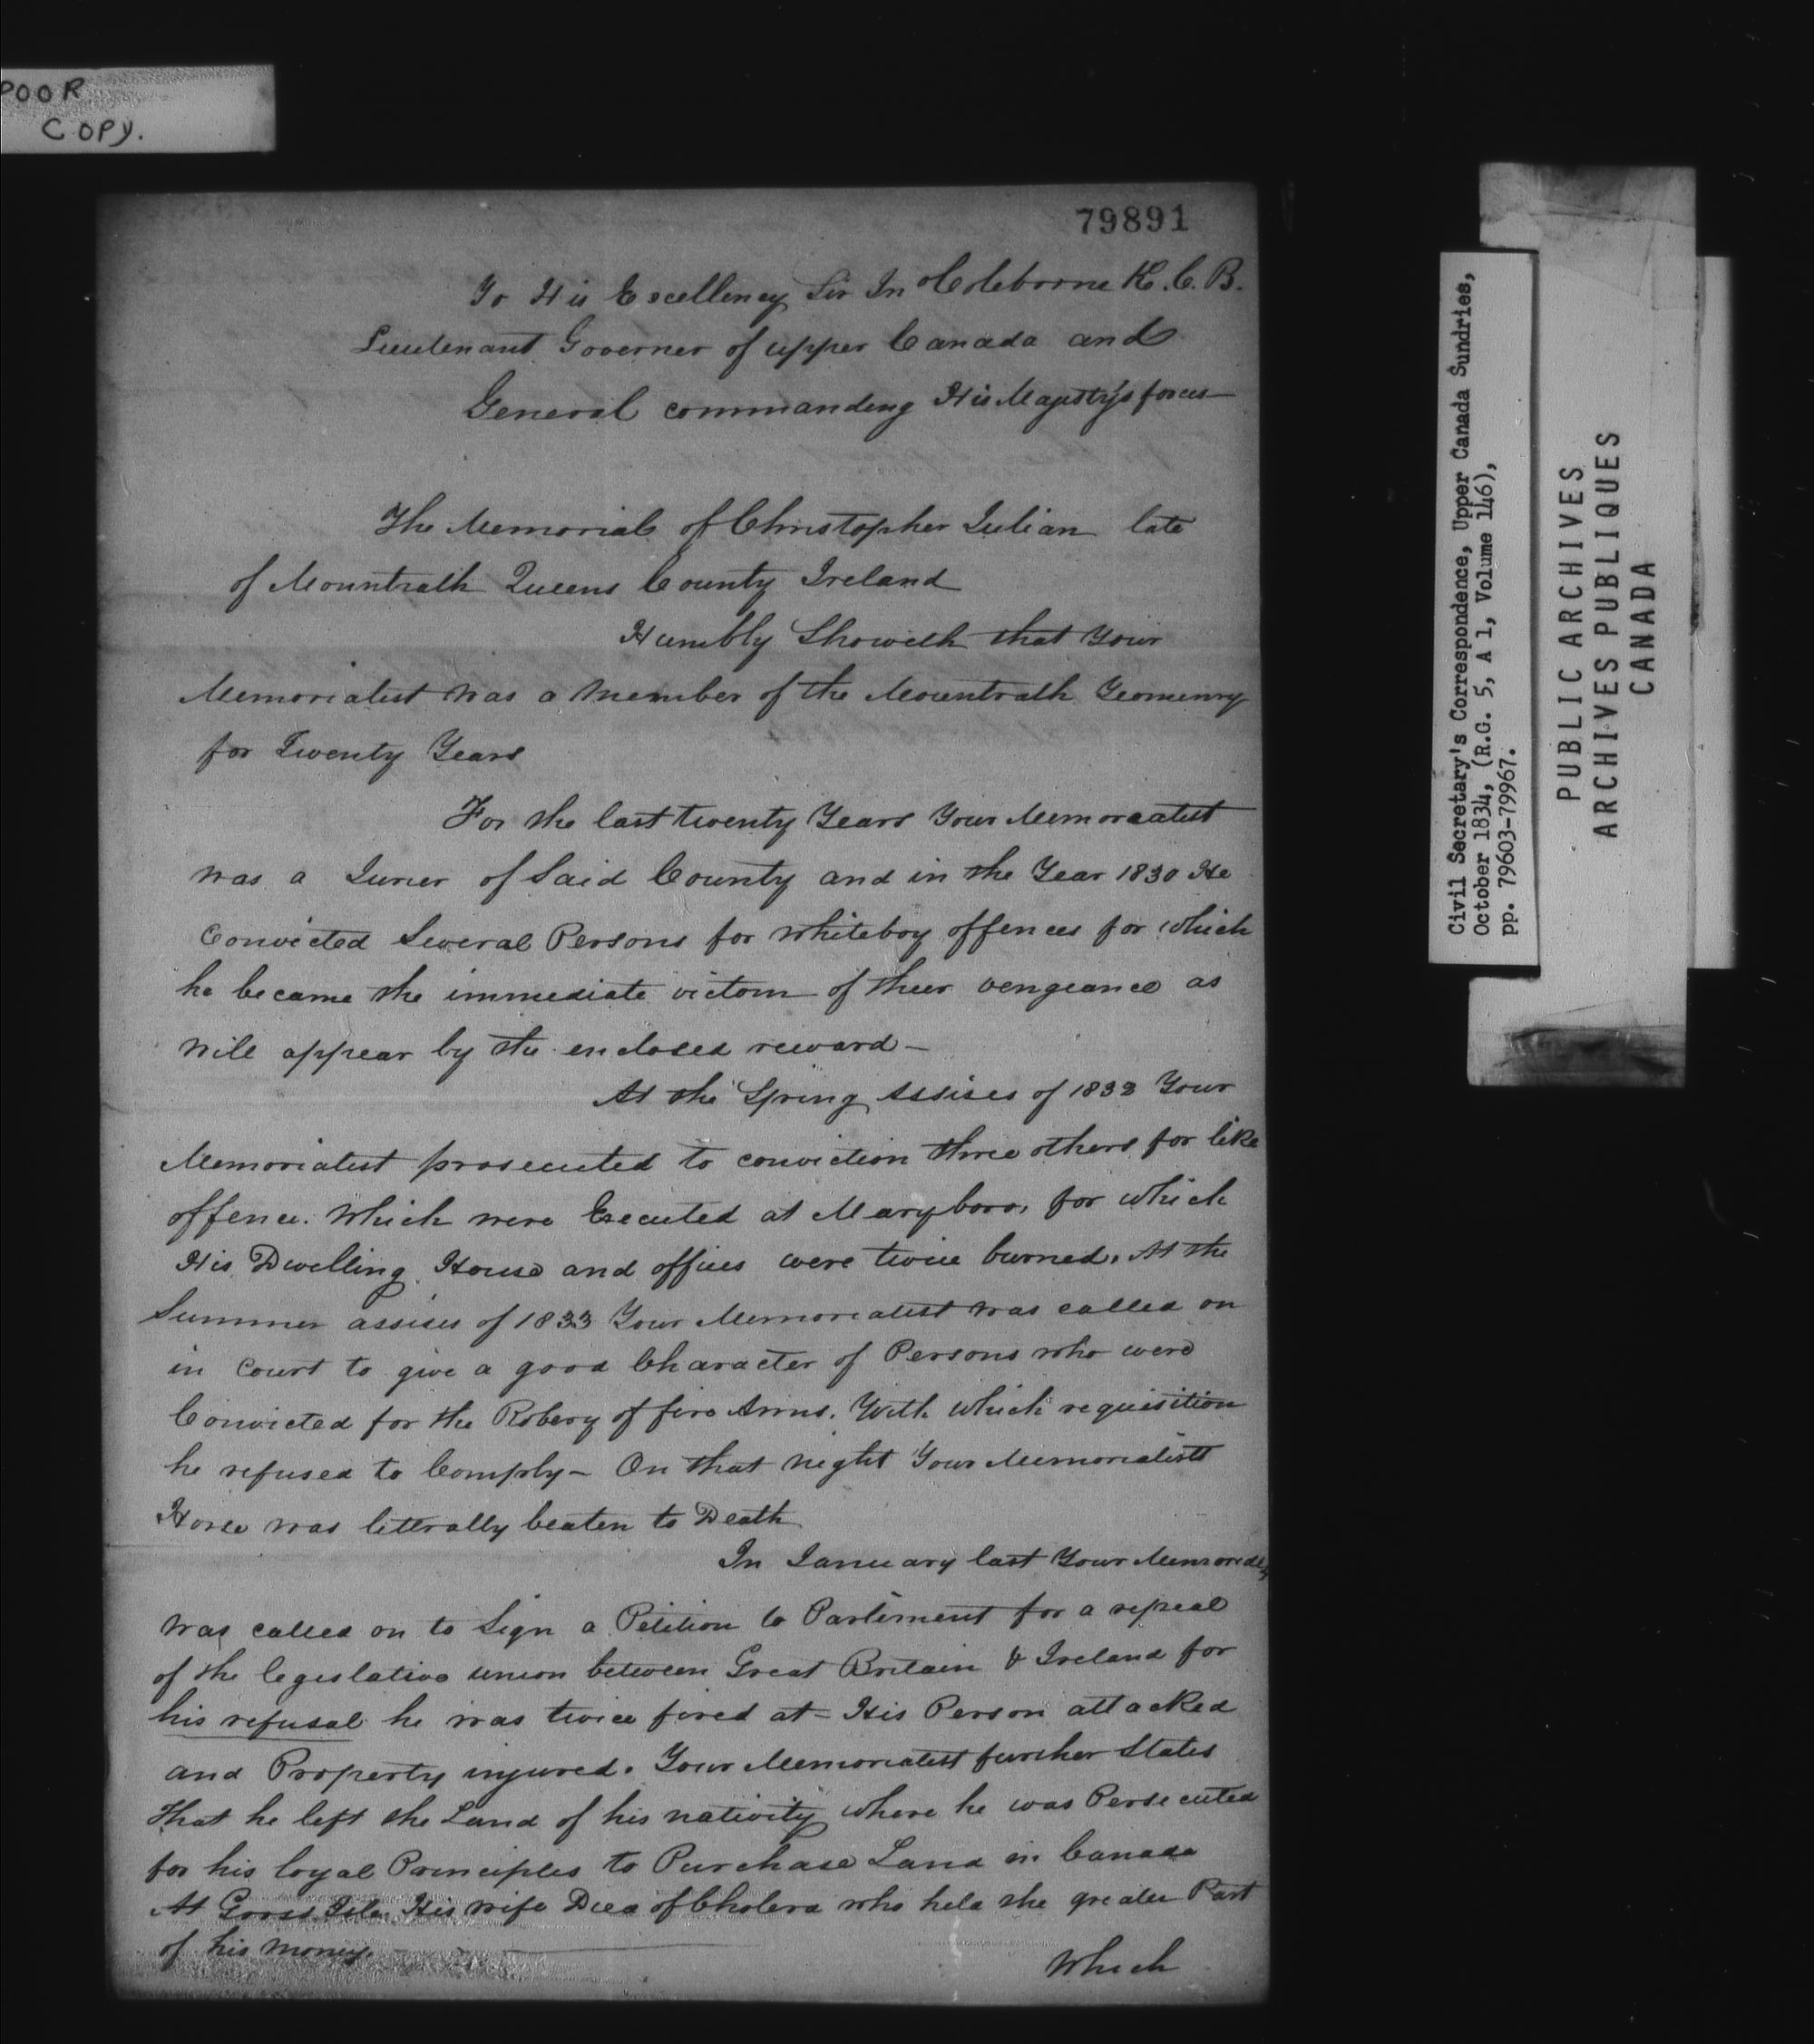 POOR
COPY.
79891
To His Excellency Sir Jn Coleborne K.C.B.
Lieutenant Governer of upper Canada and
General commanding His Majesty's forces
The Memorial of Christopher Julian late
of Mountrath Queens County Ireland
Humbly Showeth that Your
Memorialist was a member of the Mountrath Yeomenry
for Twenty Years
For the last twenty Years Your Memoraatist
was a Jurer of Said County and in the Year 1830 He
Convicted Several Persons for whiteboy offences for which
he became the immediate victom of their vengeance as
will appear by the enclosed reward —
At the Spring Assises of 1833 Your
Memorialist prosecuted to conviction three others for like
offence. Which were Executed at Maryboro, for which
His Dwelling House and offices were twice burned. At the
Summer assises of 1833 Your Memorialist was called on
in Court to give a good Character of Persons who were
Convicted for the Robery of fire Arms. With which requisition
he refused to Comply — On that night Your Memorialists
Horse was litterally beaten to Death
In January last Your Memorialist
was called on to Sign a Petition to Parliment for a repeal
of the legislative union between Great Britain & Ireland for
his refusal he was twice fired at - His Person attacked
and Property injured. Your Memorialist further States
That he left the Land of his nativity where he was Persecuted
for his loyal Principles to Purchase Land in Canada
At Gross Isle His wife Died of Cholera who held the greater Part
of his money.
Which
Civil Secretary's Correspondence, Upper Canada Sundries,
October 1834, (R.G. 5, A 1, Volume 146),
pp. 79603-79967.
PUBLIC ARCHIVES
ARCHIVES PUBLIQUES
CANADA